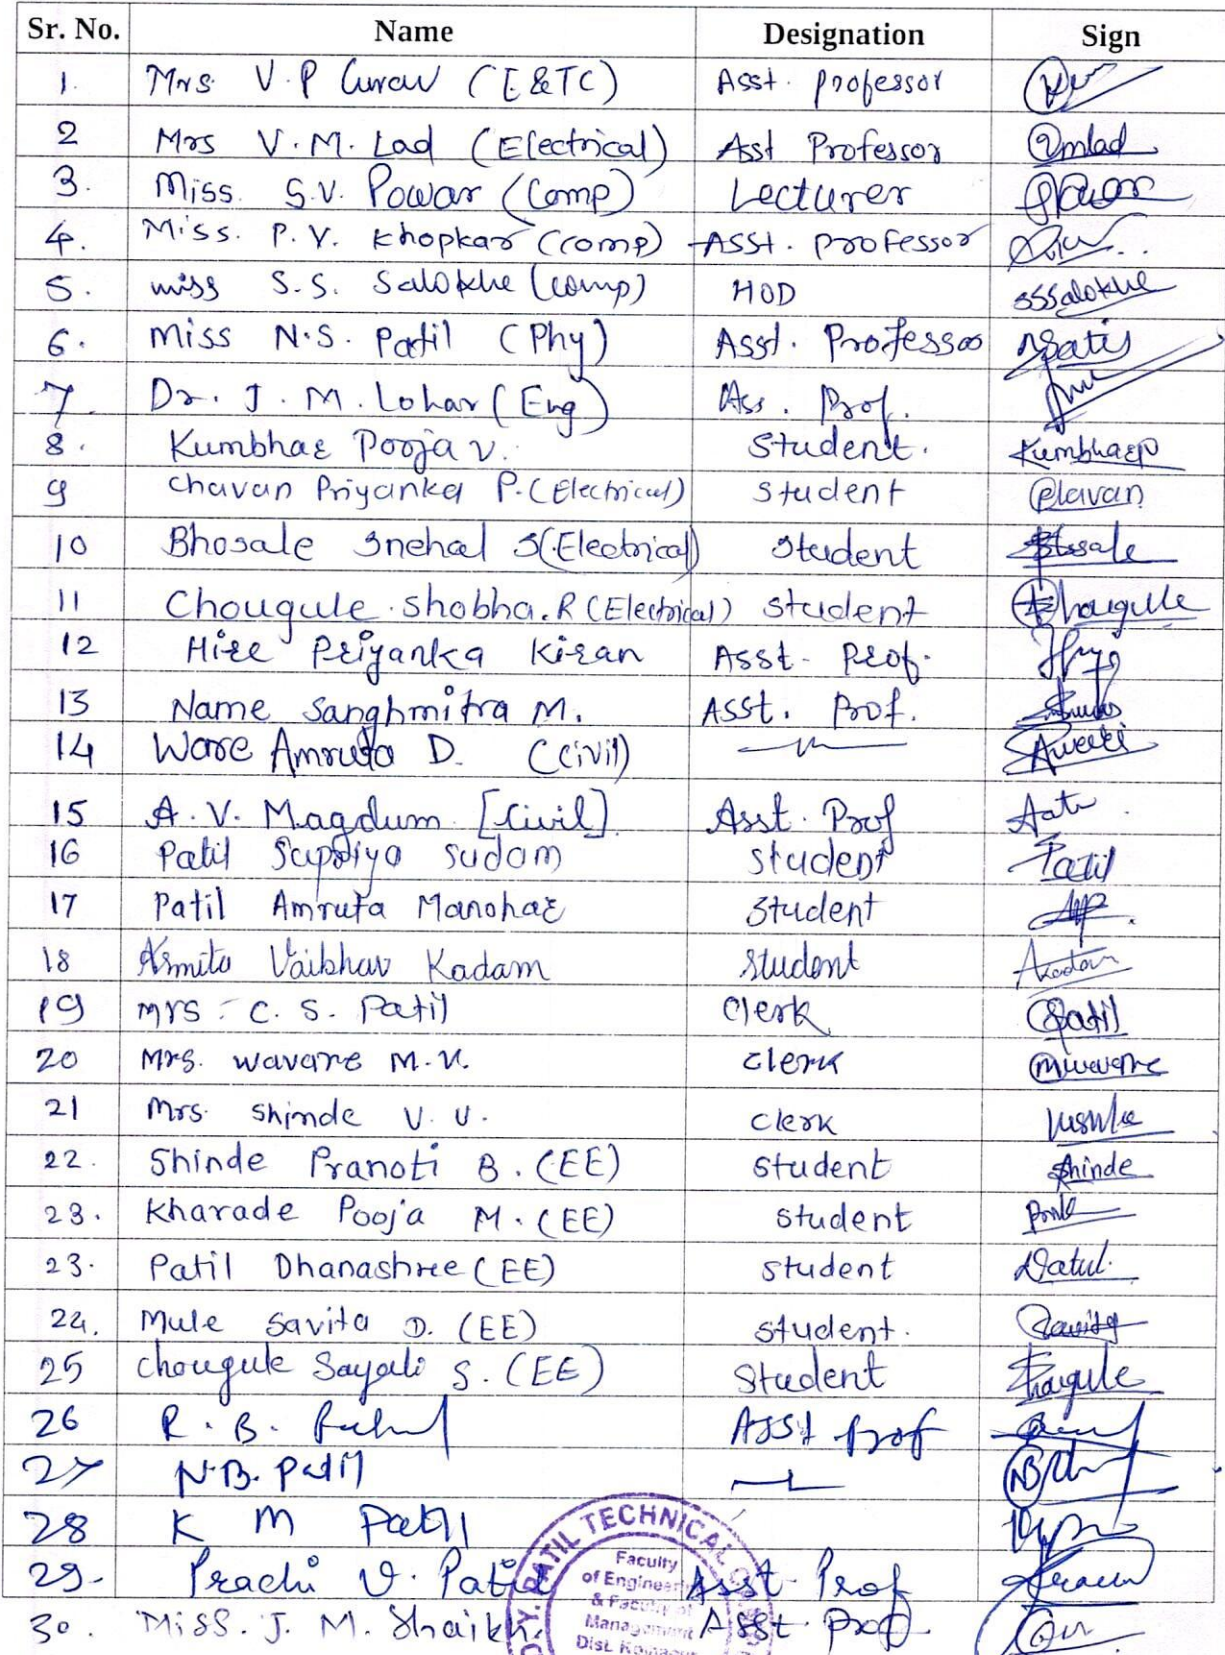 Sr. No. Name Designation Sign
1. Mrs. V.P Gurav (E&TC) Asst. professor
2 Mrs V.M. Lad (Electrical) Asst Professor vmlad
3. Miss. S.V. Powar (Comp) Lecturer
4. Miss. P. V. Khopkar (comp) Asst. professor
5. miss S.S. Salokhe (comp) HOD sssalokhe
6. Miss N.S. Patil (Phy) Asst. Professor
7. Dr. J. M. Lohar (Eng) Ass. Prof.
8. Kumbhar Pooja v. Student. Kumbharp
9 Chavan Priyanka P. (Electrical) Student
10 Bhosale Snehal S (Electrical) Student
11 Chougule Shobha. R (Electrical) student Chougule
12 Hire Priyanka Kiran Asst. Prof.
13 Name Sanghmitra M. Asst. Prof.
14 Ware Amruta D. (Civil) —〃—
15 A. V. Magdum [Civil] Asst. Prof
16 Patil Supriya Sudam Student Patil
17 Patil Amruta Manohar Student
18 Asmita Vaibhav Kadam Student
19 Mrs. C. S. Patil Clerk
20 Mrs. Wavare M.V. Clerk
21 Mrs. Shinde V. V. Clerk
22. Shinde Pranoti B. (EE) Student Shinde
23. Kharade Pooja M. (EE) Student
23. Patil Dhanashree (EE) Student
24. Mule Savita D. (EE) Student.
25 Chougule Sayali S. (EE) Student
26 R. B. Asst Prof
27 N.B. Patil —〃—
28 K M Patil
29. Prachi V. Patil Asst. Prof
30. Miss. J. M. Shaikh. Asst Prof.
PATIL TECHNICAL
Faculty
of Engineering
& Faculty of
Management
Dist.